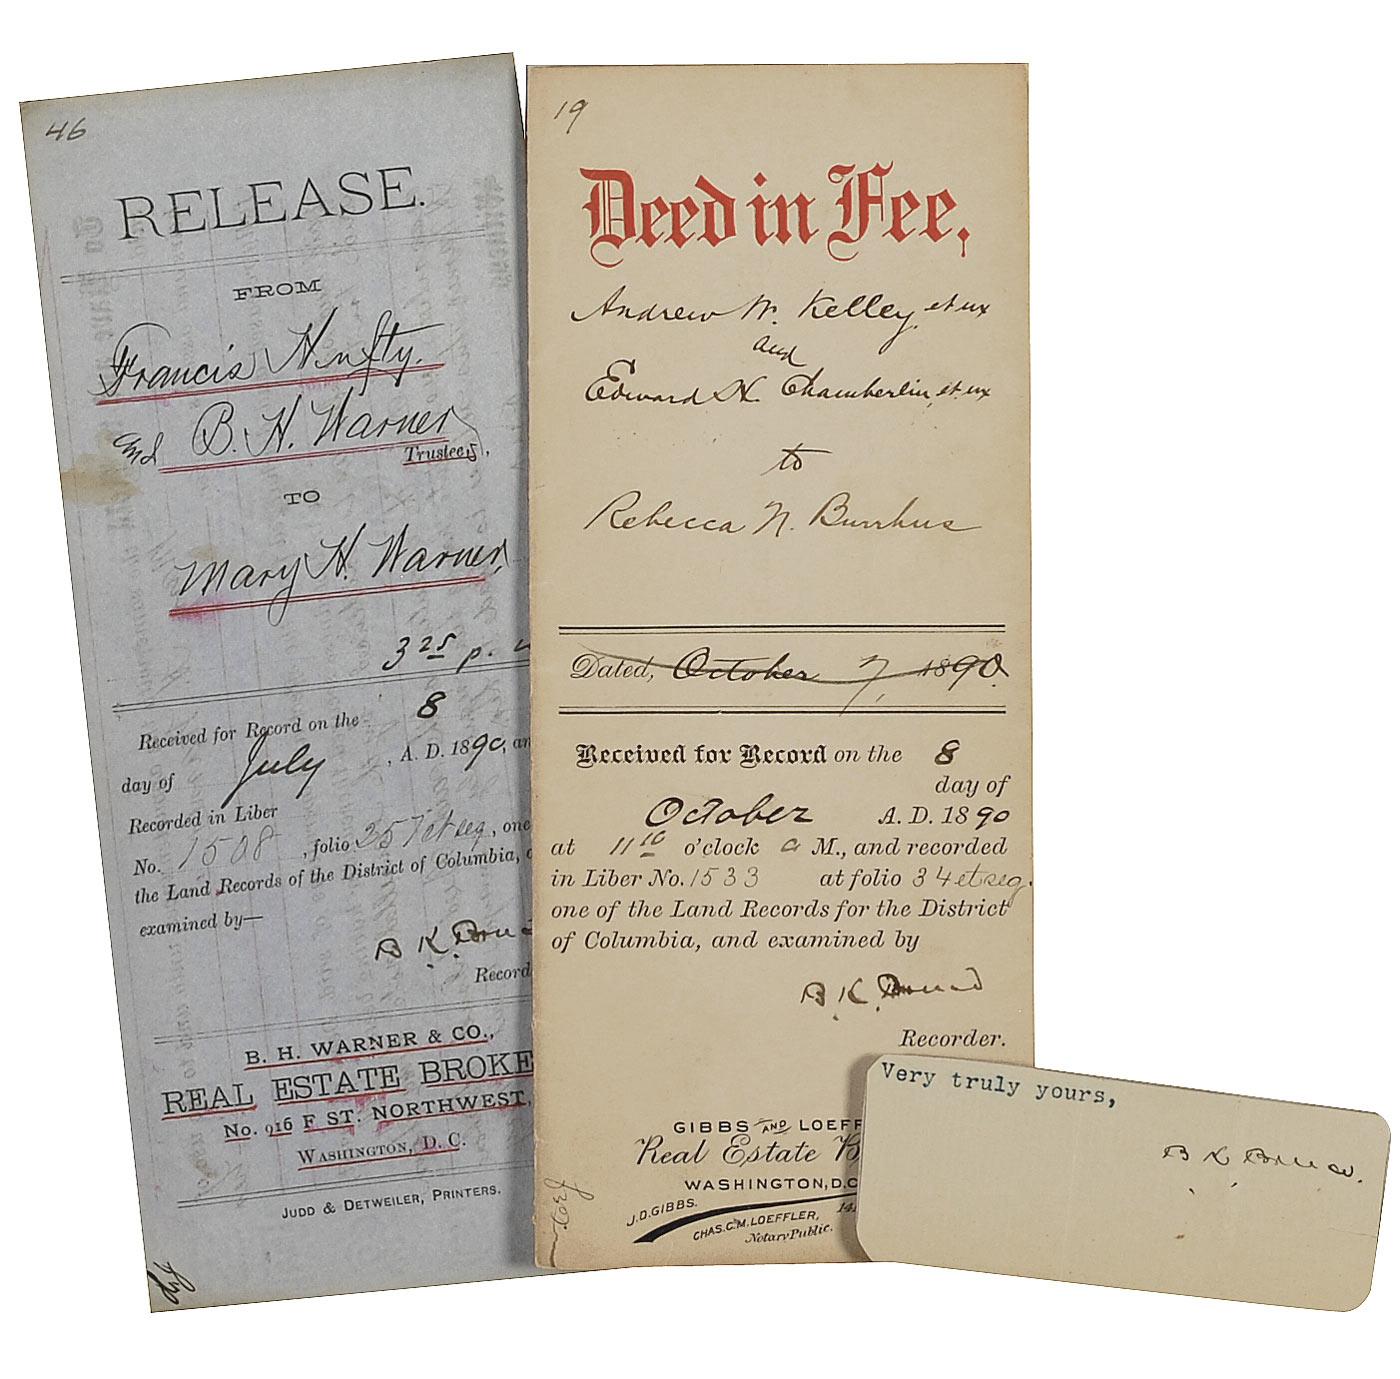 46
RELEASE.
FROM
Francis Hufty.
and B. H. Warner
Trustees,
TO
Mary H. Warner,
3 25 p.
Received for Record on the 8
day of July, A. D. 1890, an
Recorded in Liber
No. 1508, folio 357 et seq, one
the Land Records of the District of Columbia,
examined by—
B. K. Bruc
Record
B. H. WARNER & CO.,
REAL ESTATE BROKE
No. 916 F ST. NORTHWEST,
WASHINGTON, D. C.
JUDD & DETWEILER, PRINTERS.
19
Deed in Fee,
Andrew W. Kelley, et ux
and
Edward H Chamberlin, et ux
to
Rebecca N. Burrhus
Dated, October 7, 1890.
Received for Record on the 8
day of
October A. D. 1890
at 11 10 o'clock a M., and recorded
in Liber No. 1533 at folio 34 et seq.
one of the Land Records for the District
of Columbia, and examined by
B. K. Bruce
Recorder.
GIBBS AND LOEFF
Real Estate B
WASHINGTON, D.C
J.D. GIBBS. 141
CHAS. C. M. LOEFFLER,
Notary Public.
Very truly yours,
B. K. Bruce.